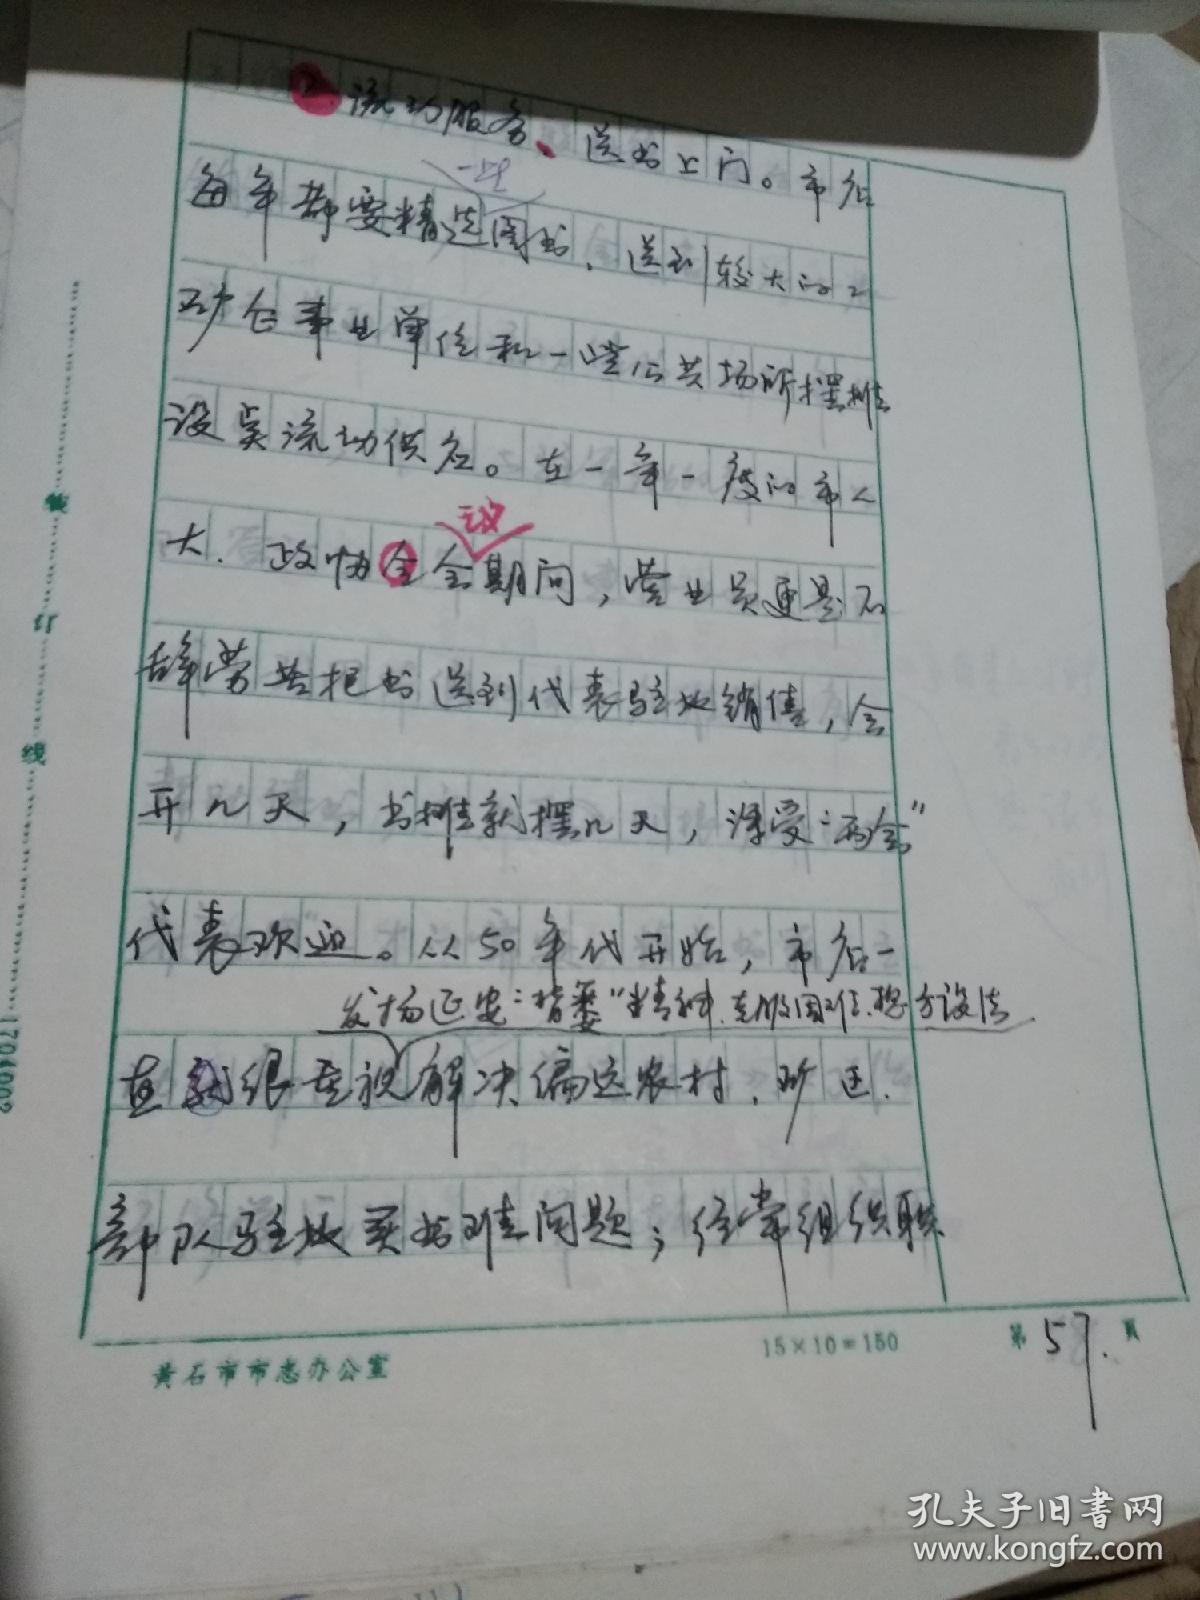 2. 流动服务、送书上门。市店
一些
每年都要精选图书、送到较大的工
矿企事业单位和一些公共场所摆摊
设点流动供应。在一年一度的市人
议
大、政协全会期间，营业员更是不
辞劳苦把书送到代表驻地销售，会
开几天，书摊就摆几天，深受“两会”
代表欢迎。从50年代开始，市店一
发扬延安“背篓”精神、克服困难、想方设法
直就很重视解决偏远农村、矿区、
部队驻地买书难问题；经常组织职
黄石市市志办公室
15×10=150
第57.页
装
订
线
1704002
孔夫子旧书网
www.kongfz.com